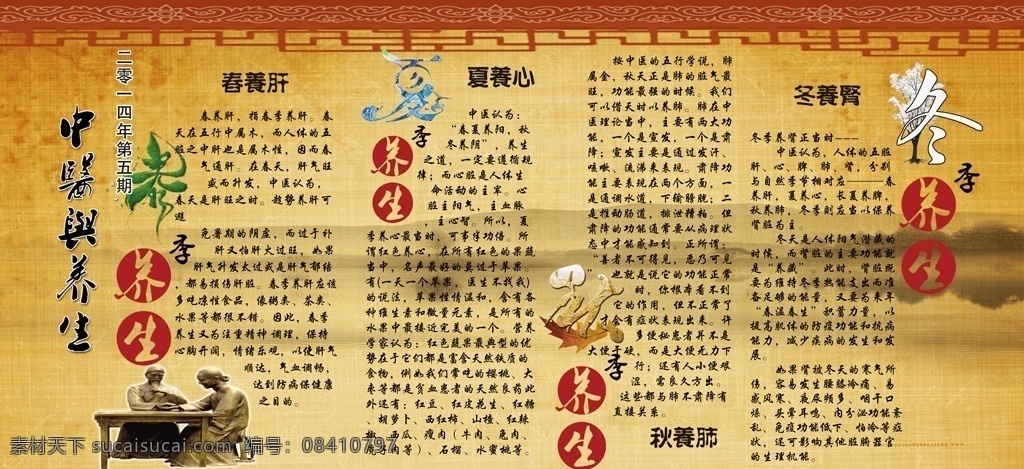 二零一四年第五期
中醫與养生
春養肝
春季养生
春养肝，指春季养肝。春
天在五行中属木，而人体的五
脏之中肝也是属木性，因而春
气通肝。在春天，肝气旺
盛而升发，中医认为，
春天是肝旺之时。趁势养肝可
避
免暑期的阴虚，而过于补
肝又怕肝火过旺，如果
肝气升发太过或是肝气郁结
，都易损伤肝脏。春季养肝应该
多吃凉性食品，像粥类、茶类、
水果等都很不错。因此，春季
养生又为注重精神调理，保持
心胸开阔，情绪乐观，以使肝气
顺达，气血调畅，
达到防病保健康
之目的。
夏養心
夏季养生
中医认为：
“春夏养阳，秋
冬养阴”，养生
之道，一定要遵循规
律；而心脏是人体生
命活动的主宰。心
脏主阳气，主血脉
主心智。所以，夏
季养心最当时，可事半功倍。所
谓红色养心，在所有红色的果蔬
当中，名声最好的莫过于苹果。
有(一天一个苹果，医生不找我)
的说法，苹果性情温和，含有各
种维生素和微量元素，是所有的
水果中最接近完美的一个。营养
学家认为：红色蔬果最典型的优
势在于它们都是富含天然铁质的
食物，例如我们常吃的樱桃、大
枣等都是贫血患者的天然良药此
外还有：红豆、红皮花生、红糖
胡萝卜、西红柿、山楂、红辣
椒、西瓜、瘦肉（牛肉、兔肉、
虎子肉等）、石榴、水蜜桃等。
按中医的五行学说，肺
属金，秋天正是肺的脏气最
旺，功能最强的时候。我们
可以借天时以养肺。肺在中
医理论当中，主要有两大功
能，一个是宣发，一个是肃
降；宣发主要是通过发汗、
咳嗽、流涕来表现。肃降功
能主要表现在两个方面，一
是通调水道，下输膀胱；二
是推动肠道，排泄糟粕。但
肃降的功能通常要从病理状
态中才能感知到。正所谓：
“善者不可得见，恶乃可见
”也就是说它的功能正常
时，你根本看不到
它的作用，但不正常了
才会有症状表现出来。许
多便秘患者并不是
大便干硬，而是大便无力下
行；还有人小便艰
涩，需良久方出。
这些都与肺不肃降有
直接关系。
秋季养生
秋養肺
冬養腎
冬季养生
冬季养肾正当时---
中医认为，人体的五脏
肝、心、脾、肺、肾，分别
与自然季节相对应————春
养肝，夏养心，长夏养脾，
秋养肺，冬季则应当以保养
肾脏为主。
冬天是人体阳气潜藏的
时候，而肾脏的主要功能就
是“养藏”。此时，肾脏既
要为维持冬季热能支出而准
备足够的能量，又要为来年
“春温春生”积蓄力量，以
提高肌体的防疫功能和抗病
能力，减少疾病的发生和发
展。
如果肾被冬天的寒气所
伤，容易发生腰膝冷痛、易
感风寒、夜尿频多、咽干口
燥、头晕耳鸣、内分泌功能紊
乱、免疫功能低下、怕冷等症
状，还可影响其他脏腑器官
的生理机能。
素材天下 sucaisucai.com 编号：08410797